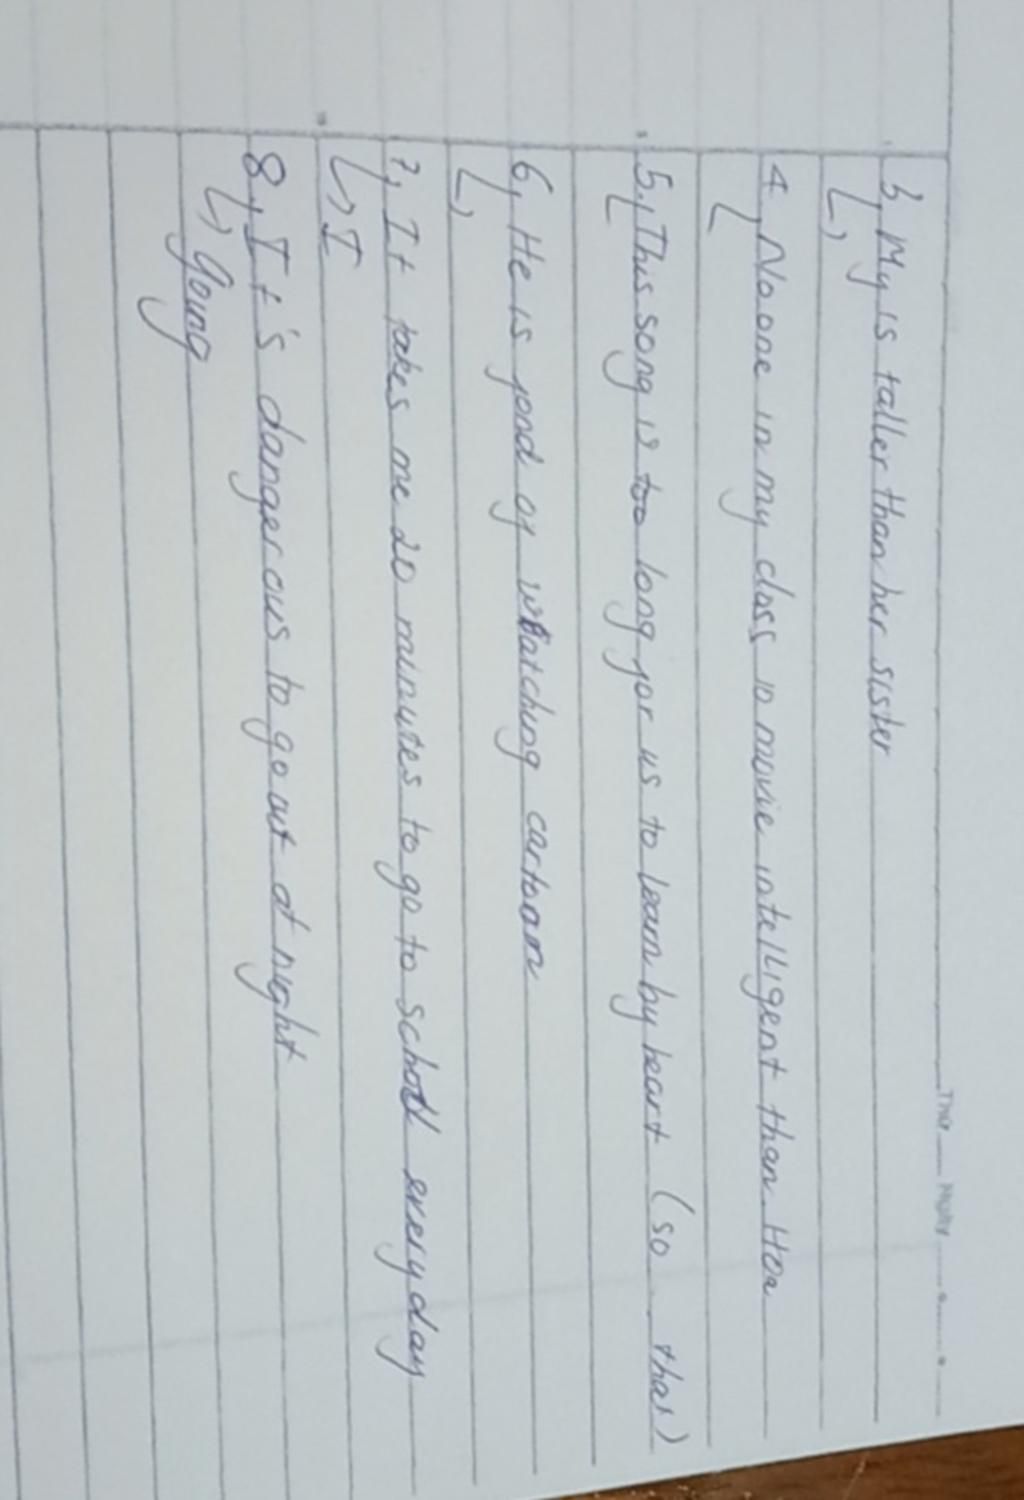 Thứ Ngày
3, My is taller than her sister
↳
4, No one in my class is more intelligent than Hoa
5, This song is too long for us to learn by heart (so ... that)
6, He is fond of watching cartoon
↳
7, It takes me 20 minutes to go to school everyday
↳ I
8, It's dangerous to go out at night
↳ Going